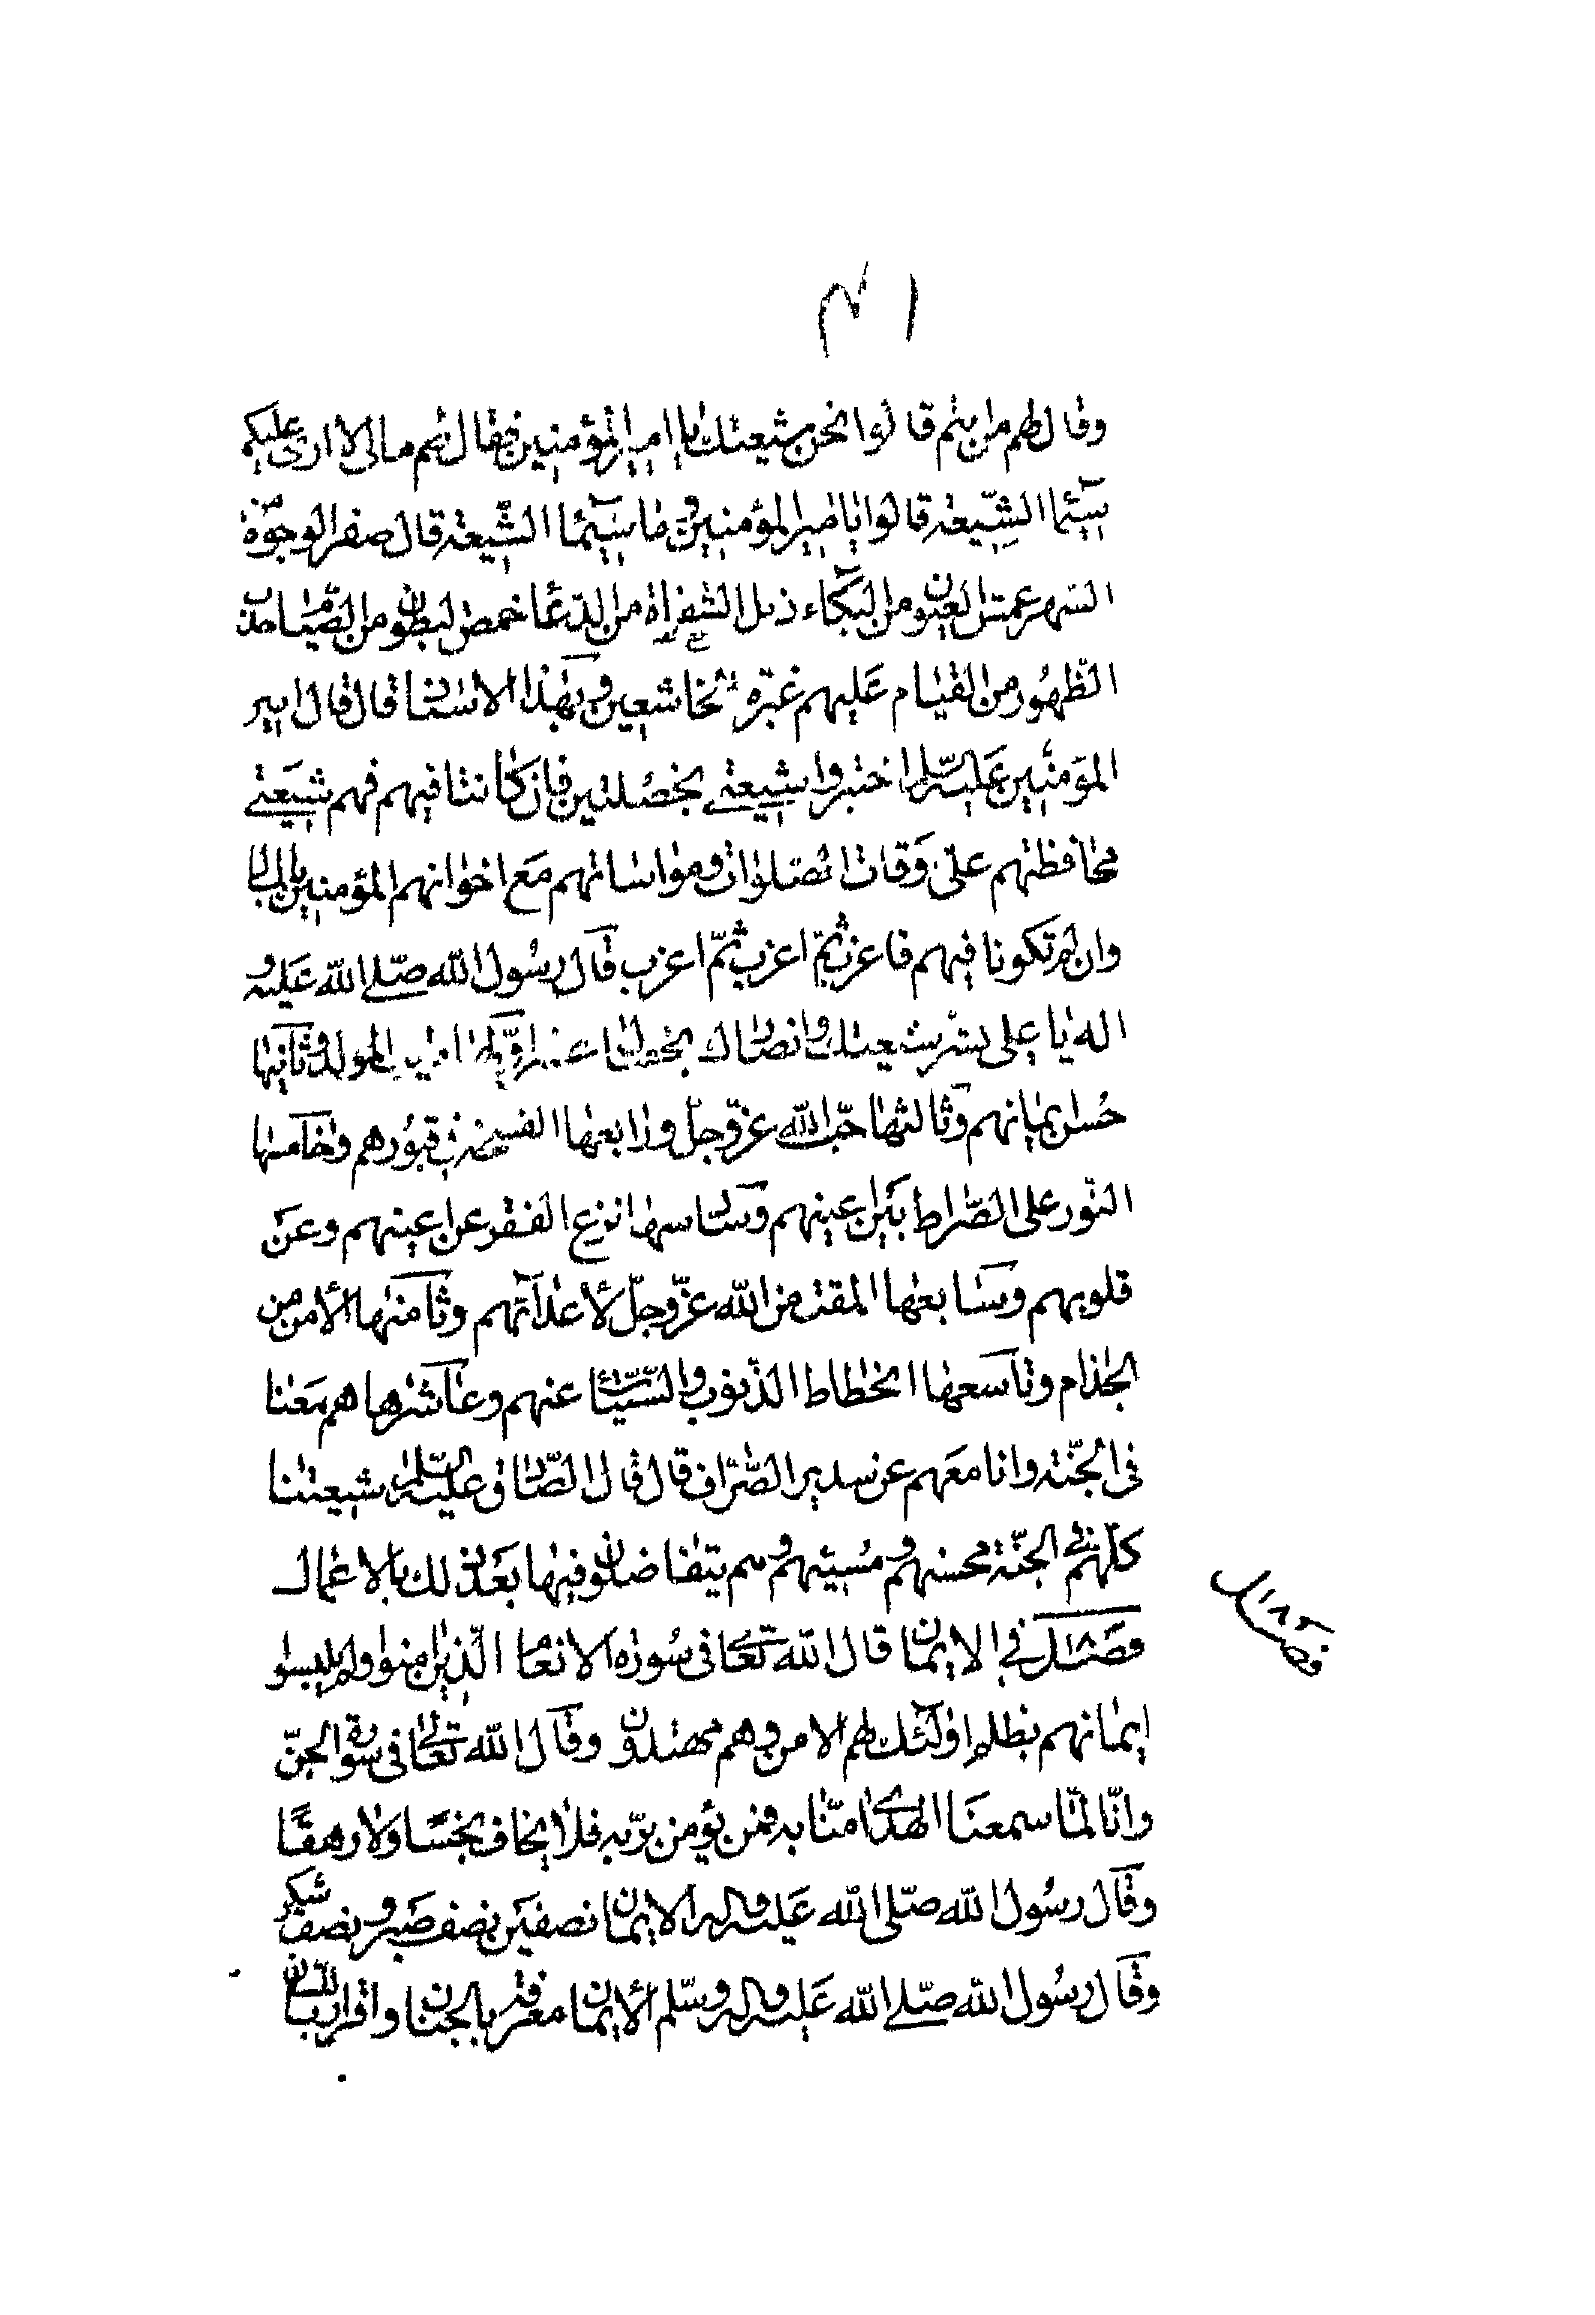 ١٣
وقال لهم من انتم قالوا نحن شيعتك يا امير المؤمنين فقال لهم مالى لا ارى عليكم
سيماء الشّيعة قالوا يا امير المؤمنين وما سيماء الشّيعة قال صفر الوجوه من
السّهر عمش العيون من البكاء ذبل الشفاة من الدّعاء خمص البطون من الصّيام حدب
الظّهور من القيام عليهم غبرة الخاشعين وبهذا الاسناد قال قال امير
المؤمنين عليه السّلم اختبروا شيعتى بخصلتين فان كانتا فيهم فهم شيعتى
محافظتهم على اوقات الصّلوات ومواساتهم مع اخوانهم المؤمنين بالمال
وان لم تكونا فيهم فاعزب ثمّ اعزب ثمّ اعزب قال رسول الله صلّى الله عليه و
اله يا على بشّر شيعتك وانصارك بخصال عشر اوّلها طيب المولد وثانيها
حسن ايمانهم وثالثها حبّ الله عزّ وجلّ ورابعها الفسحة فى قبورهم وخامسها
النّور على الصّراط بين اعينهم وسادسها نزع الفقر عن اعينهم وعن
قلوبهم وسابعها المقت من الله عزّ وجلّ لأعدائهم وثامنها الأمن من
الجذام وتاسعها انحطاط الذّنوب والسّيّئات عنهم وعاشرها هم معنا
فى الجنّة وانا معهم عن سدير الصّرّاف قال قال الصّادق عليه السّلم شيعتنا
كلّهم فى الجنّة محسنهم ومسيئهم وهم يتفاضلون فيها بعد ذلك بالاعمال
فصل فى الايمان قال الله تعالى فى سورة الانعام الّذين امنوا ولم يلبسوا
ايمانهم بظلم اولئك لهم الامن وهم مهتدون وقال الله تعالى فى سورة الجنّ
وانّا لمّا سمعنا الهدى امنّا به فمن يؤمن بربّه فلا يخاف بخسًا ولا رهقًا
وقال رسول الله صلّى الله عليه واله الايمان نصفين نصف صبر ونصف شكر
وقال رسول الله صلّى الله عليه واله وسلّم الأيمان معرفة بالجنان واقرار باللّسان